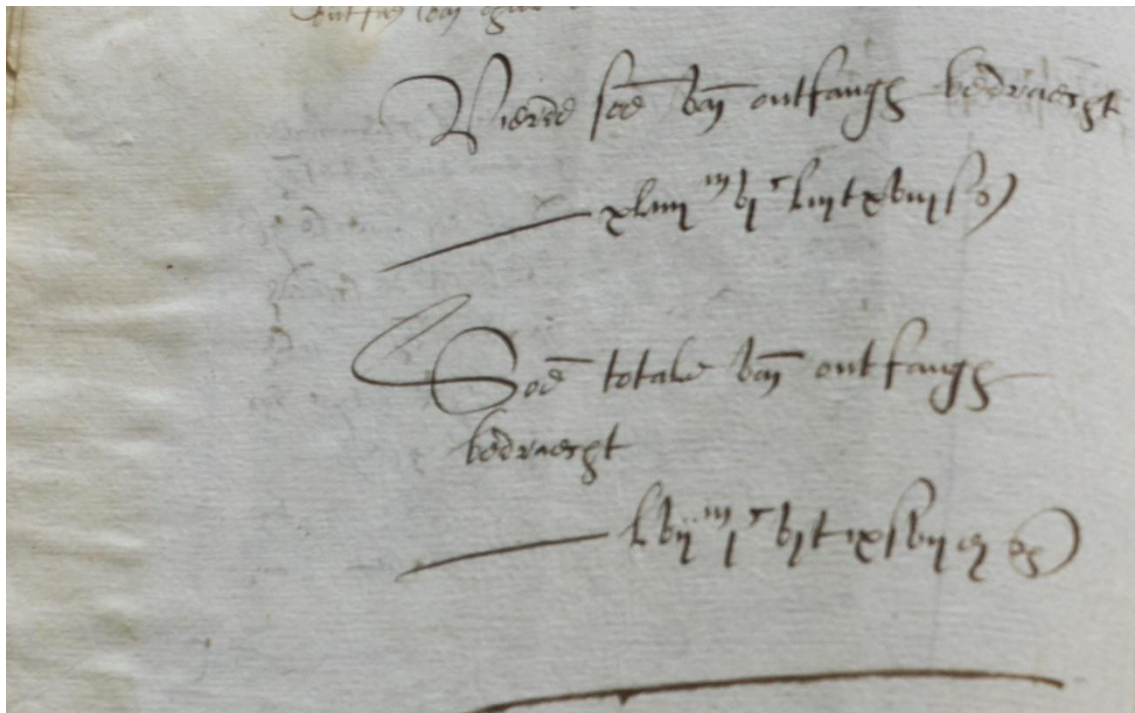 Vierde soe van ontfangs bedraecht
xliiii m vj c liij £ xviij s
Soe totale van ontfangs
bedraecht
lvij m j c vj £ ix s vij